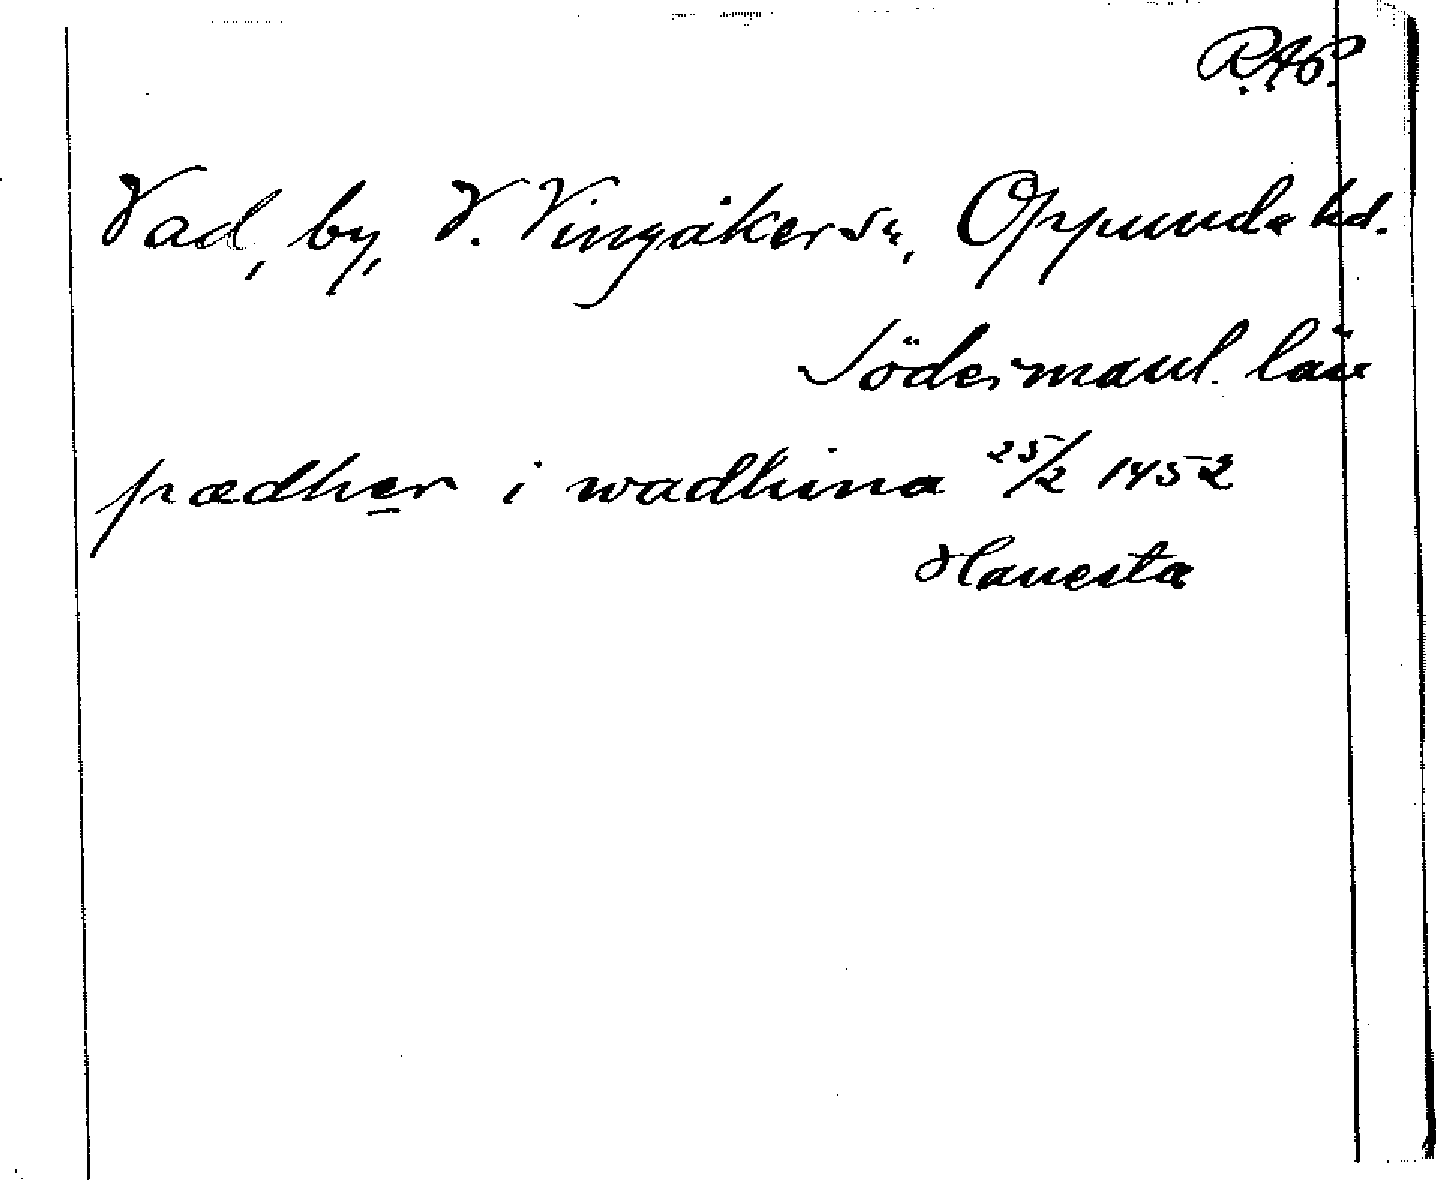 R.A.P.
Vad, by, V. Vingåker sn, Oppunda hd.
Södermanl. län
pædher i wadhina 25/2 1452
Hanesta